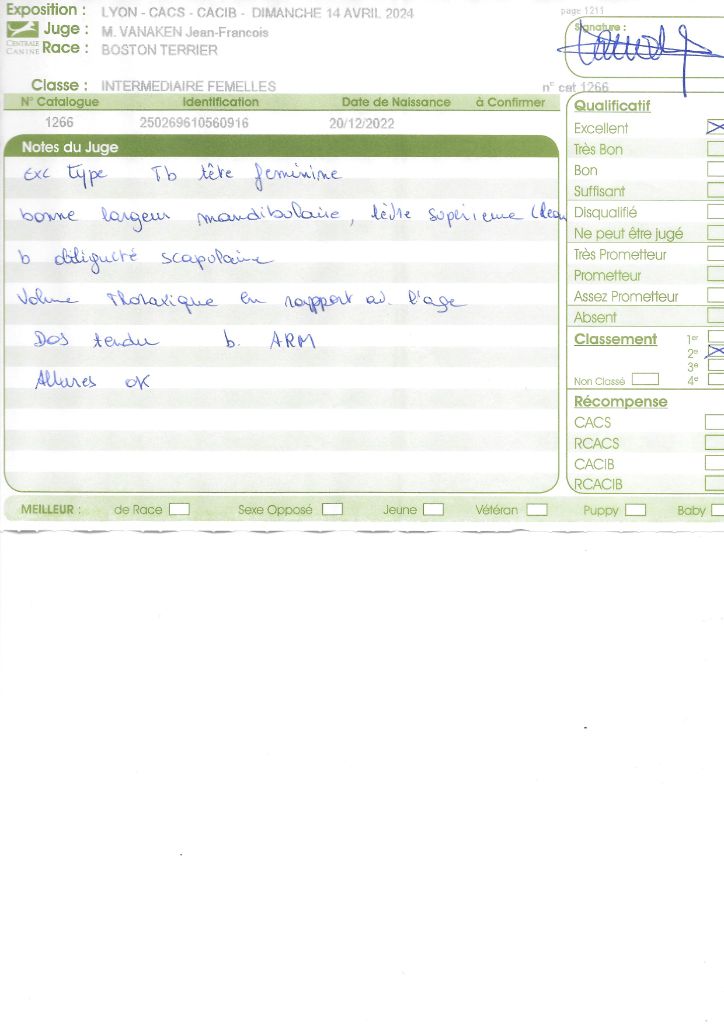 Exposition : LYON - CACS - CACIB - DIMANCHE 14 AVRIL 2024
page 1211
Signature :
Juge : M. VANAKEN Jean-Francois
CENTRALE CANINE
Race : BOSTON TERRIER
Classe : INTERMEDIAIRE FEMELLES
n° cat 1266
N° Catalogue Identification Date de Naissance à Confirmer
1266 250269610560916 20/12/2022
Notes du Juge
Exc type Tb tête feminine
bonne largeur mandibulaire, lèvre supérieure clean
b obliguité scapulaire
Volume Thoraxique en rapport av. l'age
Dos tendu b. ARM
Allures OK
Qualificatif
Excellent
Très Bon
Bon
Suffisant
Disqualifié
Ne peut être jugé
Très Prometteur
Prometteur
Assez Prometteur
Absent
Classement 1er
2e
3e
Non Classé 4e
Récompense
CACS
RCACS
CACIB
RCACIB
MEILLEUR : de Race Sexe Opposé Jeune Vétéran Puppy Baby